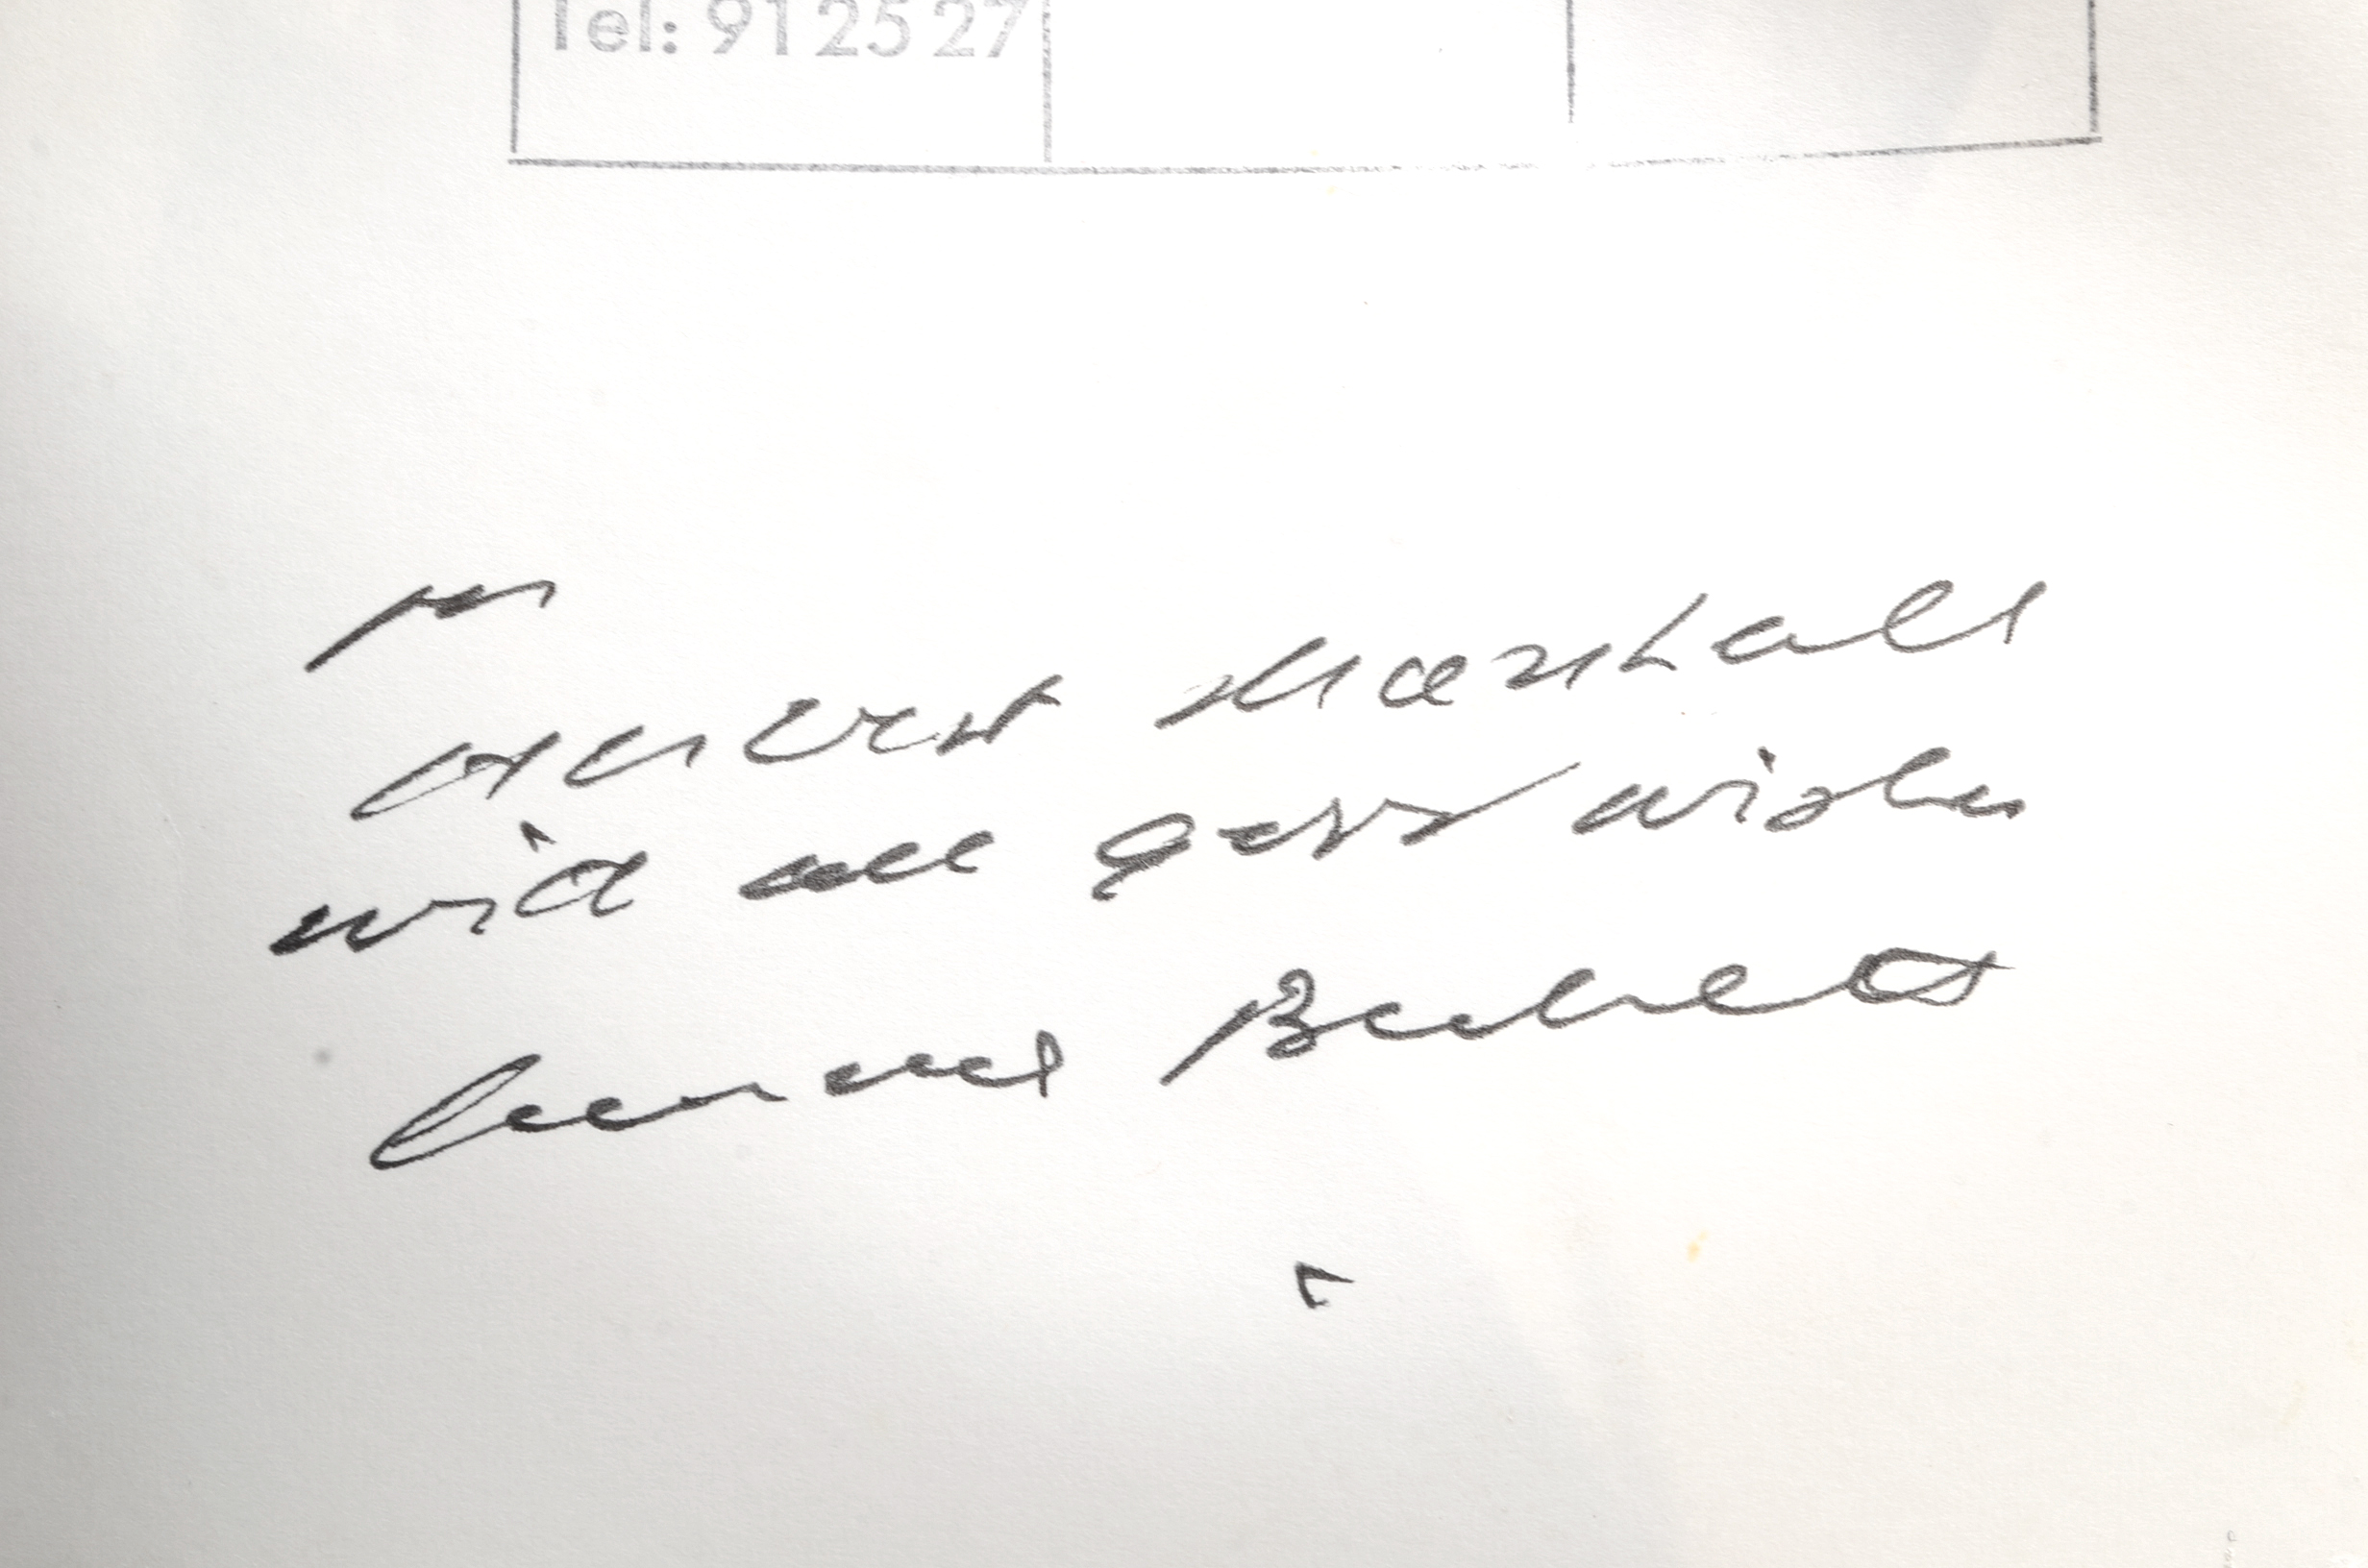 Tel: 912527
for
Herbert Marshall
with all good wishes
Samuel Beckett